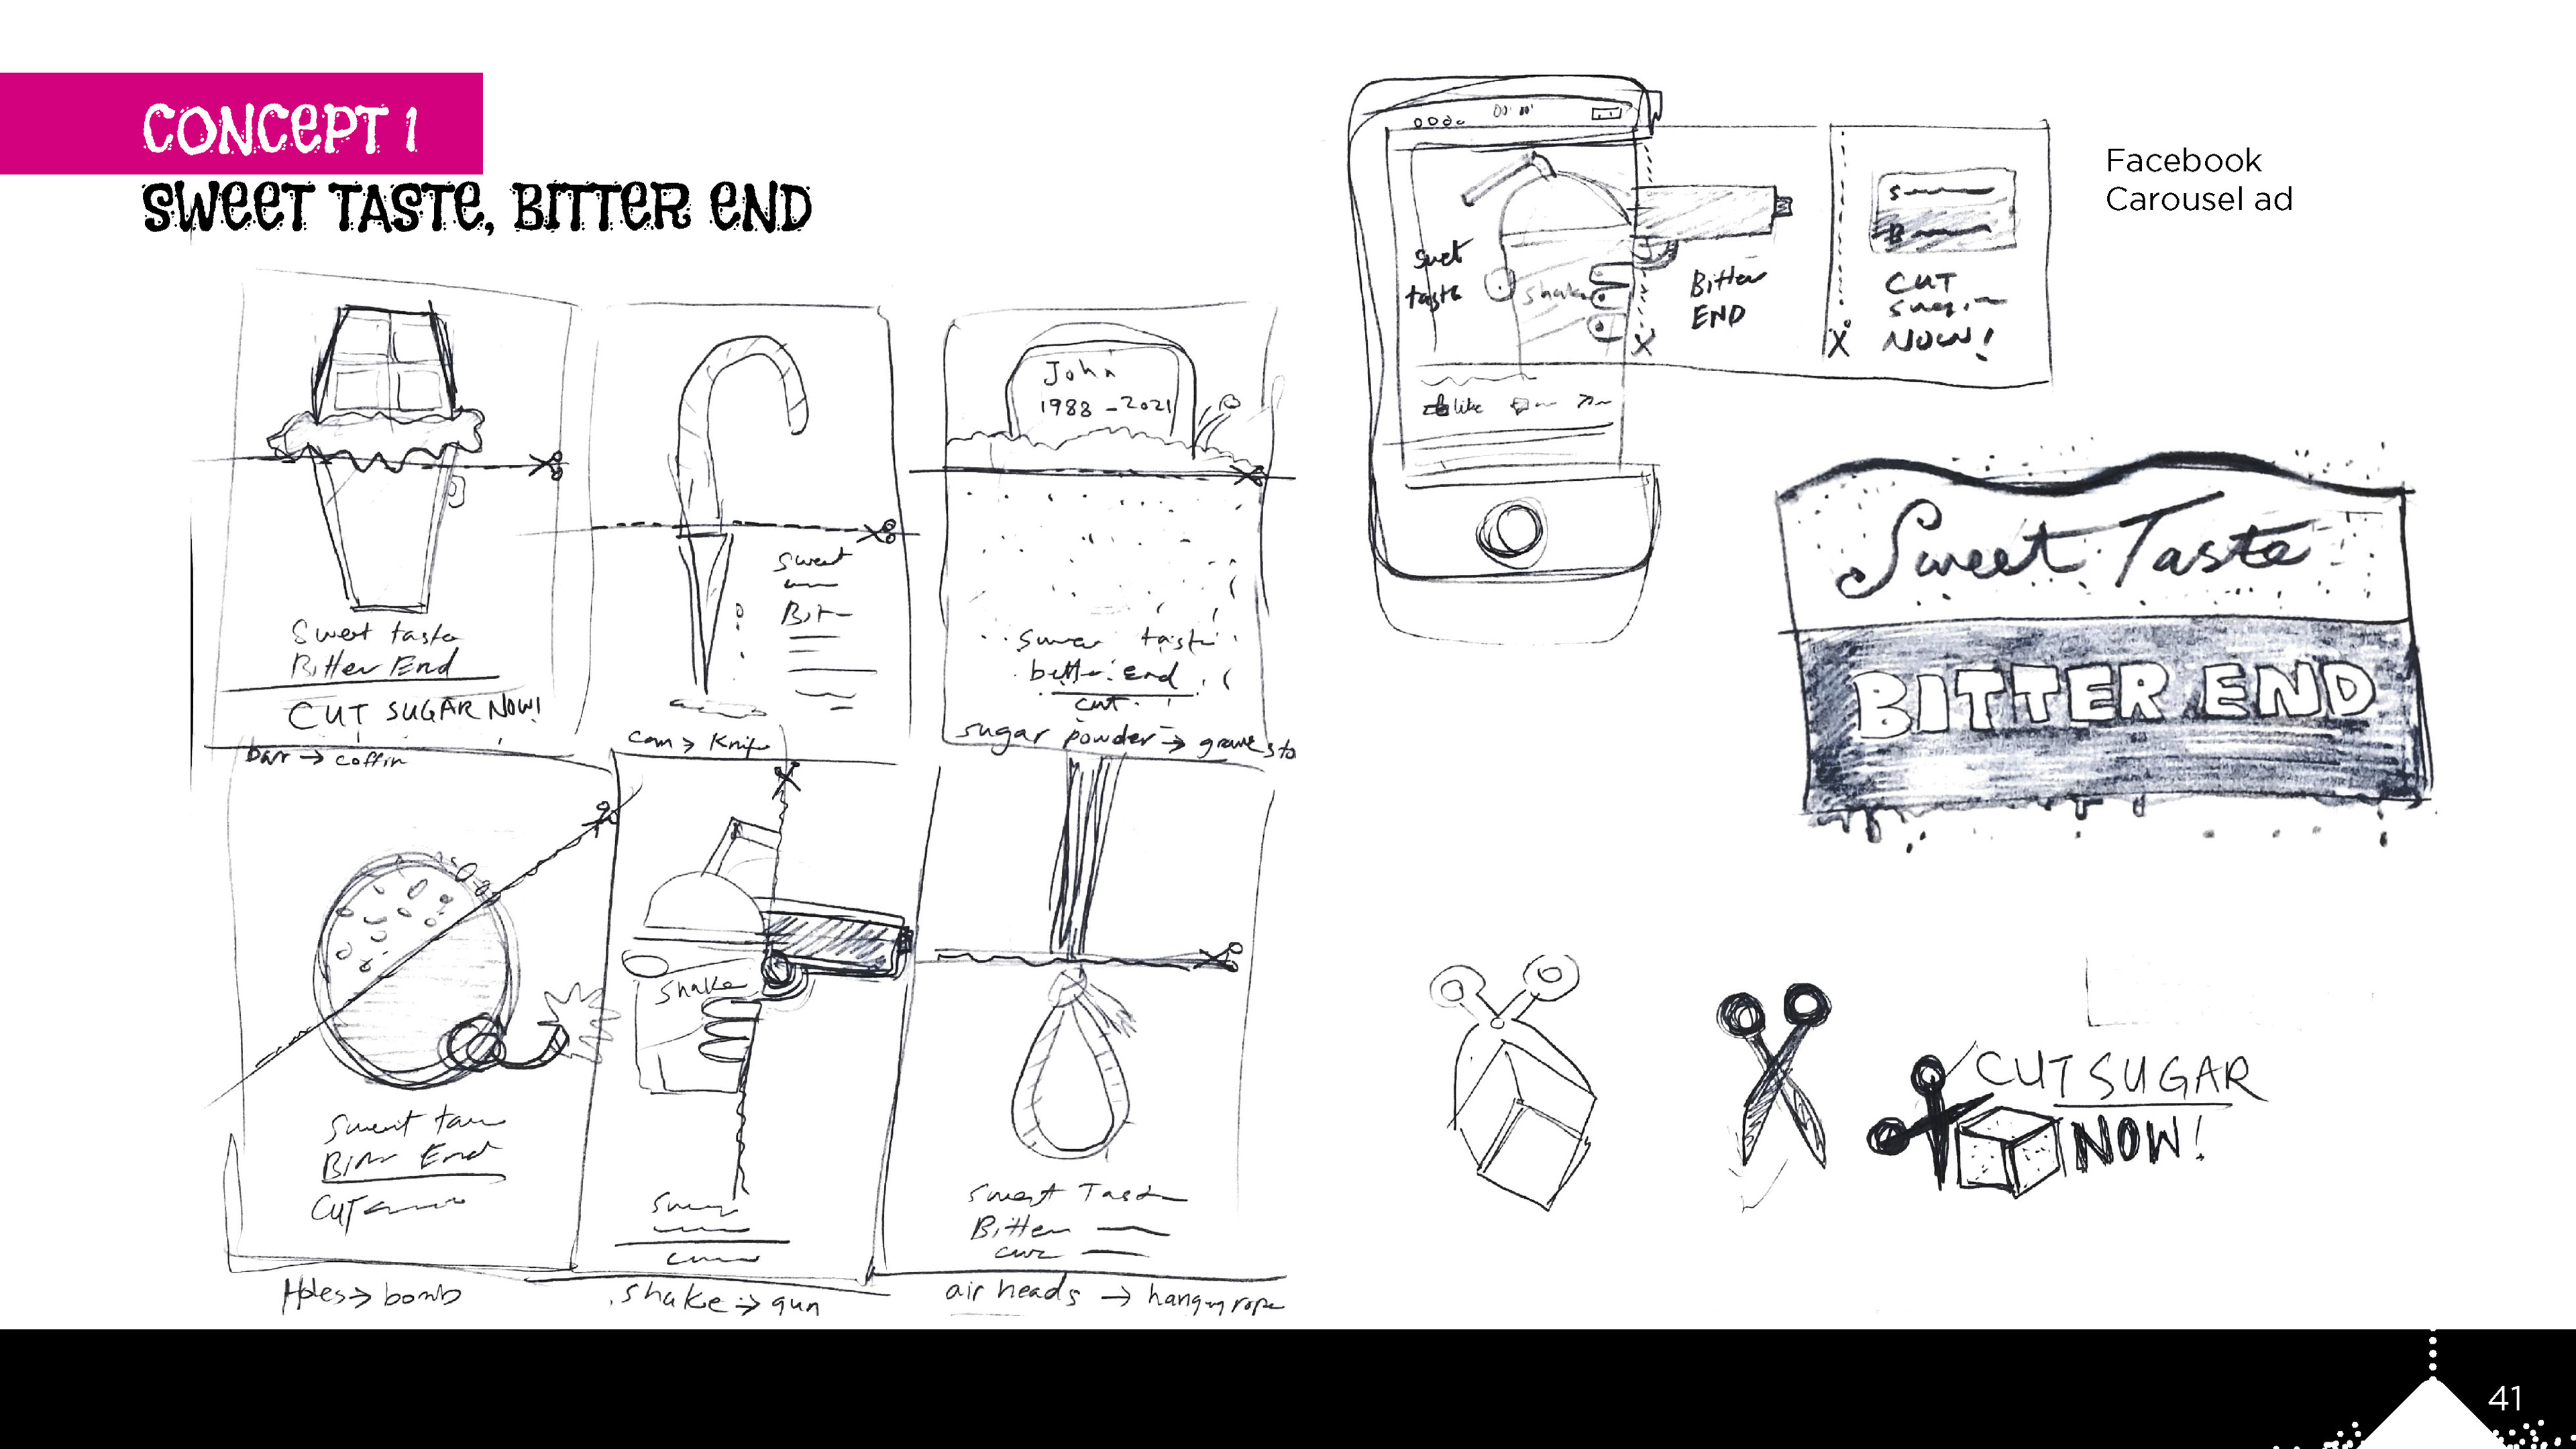 CONCEPT 1
SWEET TASTE, BITTER END
Sweet taste
Bitter End
CUT SUGAR NOW!
bar → coffin
Sweet
Bit
→ Knife
John
1988 - 2021
taste
bitter End
cut
sugar powder →
Bitter End
CUT
→ bomb
Shake
shake → gun
Sweet Taste
Bitter
air heads → hanging rope
Facebook
Carousel ad
Sweet
taste
Shake
like
Bitter
END
S
B
CUT
NOW!
Sweet Taste
BITTER END
CUT SUGAR
NOW!
41